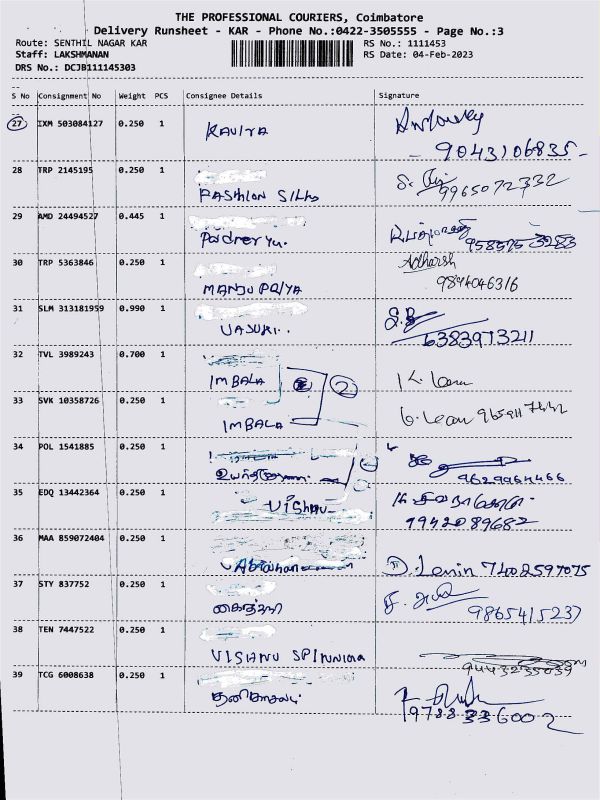 THE PROFESSIONAL COURIERS, Coimbatore
Delivery Runsheet - KAR - Phone No.:0422-3505555 - Page No.:3
Route: SENTHIL NAGAR KAR RS No.: 1111453
Staff: LAKSHMANAN RS Date: 04-Feb-2023
DRS No.: DCJB111145303
S No Consignment No Weight PCS Consignee Details Signature
27 IXM 503084127 0.250 1 KAVIYA
9043106835
28 TRP 2145195 0.250 1
FASHION 9965072332
29 AMD 24494527 0.445 1
30 TRP 5363846 0.250 1 Adharsh
MANJU PRIYA 9894046316
31 SLM 313181959 0.990 1
VASUKI.. 6383973211
32 TVL 3989243 0.700 1
IMBALA 2
33 SVK 10358726 0.250 1
IMBALA
34 POL 1541885 0.250 1
9629964466
35 EDQ 13442364 0.250 1
VISHNU 9942089682
36 MAA 859072404 0.250 1
D. Lenin 7402597075
37 STY 837752 0.250 1
9865415237
38 TEN 7447522 0.250 1
VISHNU SPINNING 9443235039
39 TCG 6008638 0.250 1
9788336002